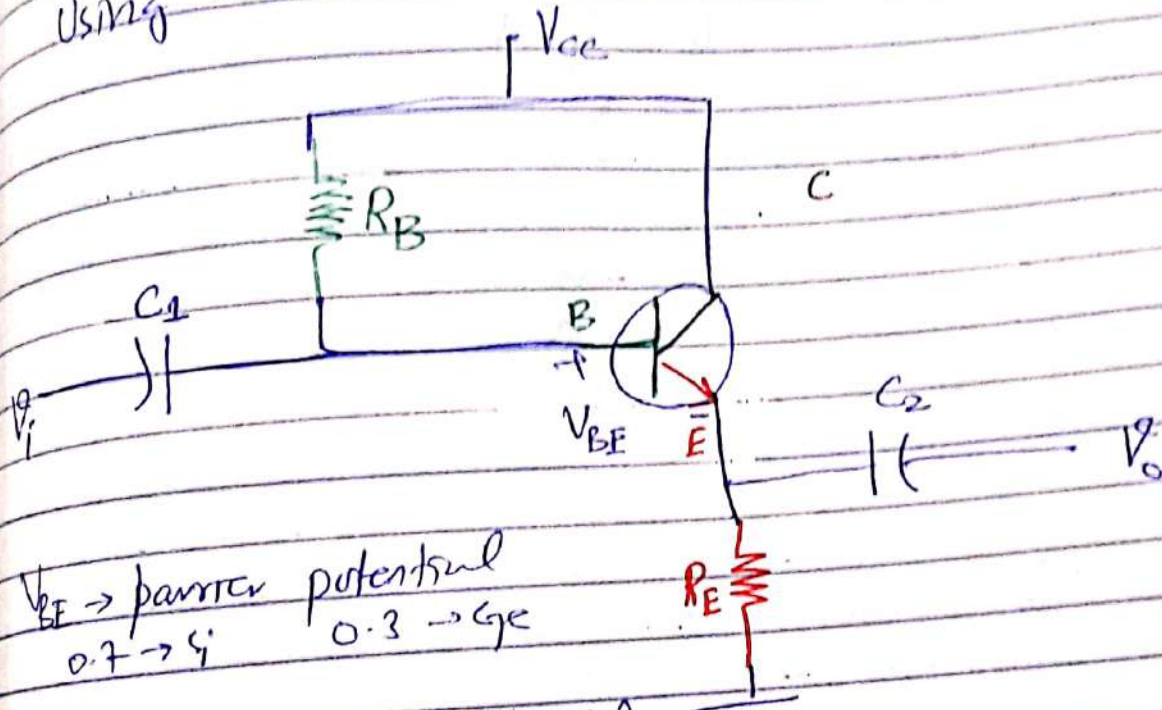 Using
Vcc
RB
C
C1
B
+
VBE
-
E
C2
Vi
Vo
RE
VBE → barrier potential
0.7 → Si 0.3 → Ge